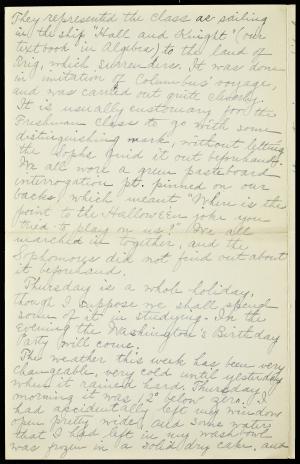 They represented the class as sailing
in the ship "Hall and Knight" (our
text book in Algebra) to the land of
Trig, which surrenders. It was done
in imitation of Columbus' voyage,
and was carried out quite cleverly.
It is usually customary for the
Freshman Class to go with some
distinguishing mark, without letting
the Sophs find it out beforehand.
We all wore a green pasteboard
interrogation pt. pinned on our
backs which meant "Where is the
point to the Halloween joke you
tried to play on us?" We all
marched in together, and the
Sophomores did not find out about
it beforehand.
Thursday is a whole holiday,
though I suppose we shall spend
some of it in studying. In the
evening the Washington's Birthday
Party will come.
The weather this week has been very
changeable, very cold until yesterday
when it rained hard. Thursday
morning it was 12° below zero. I
had accidentally left my window
open pretty wide, and some water
that I had left in my washbowl
was frozen in a solid dry cake, and